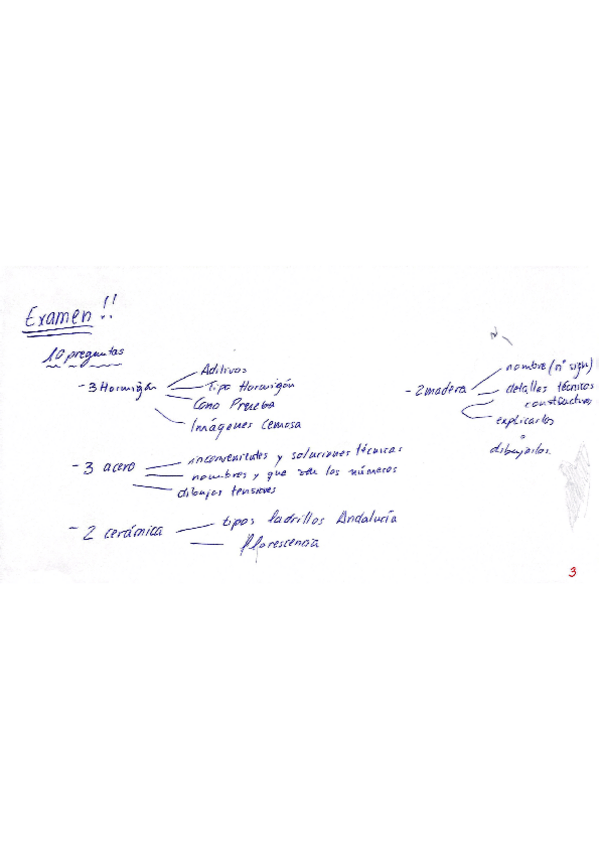 Examen!!
10 preguntas
- 3 Hormigón
Aditivos
Tipo Hormigón
Cono Prueba
Imágenes Cemosa
- 3 acero
inconvenientes y soluciones técnicas
nombres y que son los números
dibujos tensiones
- 2 cerámica
tipos ladrillos Andalucía
florescencia
- 2 madera
nombre (nº sign)
detalles técnicos
constructivos
explicarlos
dibujarlos.
3